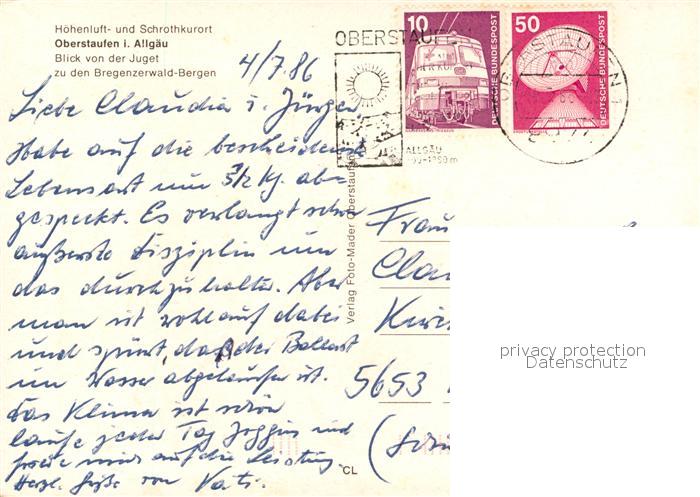 Höhenluft- und Schrothkurort
Oberstaufen i. Allgäu
Blick von der Juget
zu den Bregenzerwald-Bergen
4/7.86
Liebe Claudia u. Jürgen
Habe auf die bescheidenste
Lebensart um 3½ kg. ab-
gespeckt. Es verlangt schon
äußerste Disziplin um
das durchzuhalten. Aber
man ist wohlauf dabei
und spürt, daß der Ballast
im Wasser abgelaufen ist.
Das Klima ist schön
laufe jeden Tag Jogging und
freue mich auf die Leistung
Herzl. Grüße von Vati.
CL
Verlag Foto-Mader Oberstaufen
OBERSTAUF
ALLGÄU
10
DEUTSCHE BUNDESPOST
50
DEUTSCHE BUNDESPOST
Frau
Clau
5653
privacy protection
Datenschutz